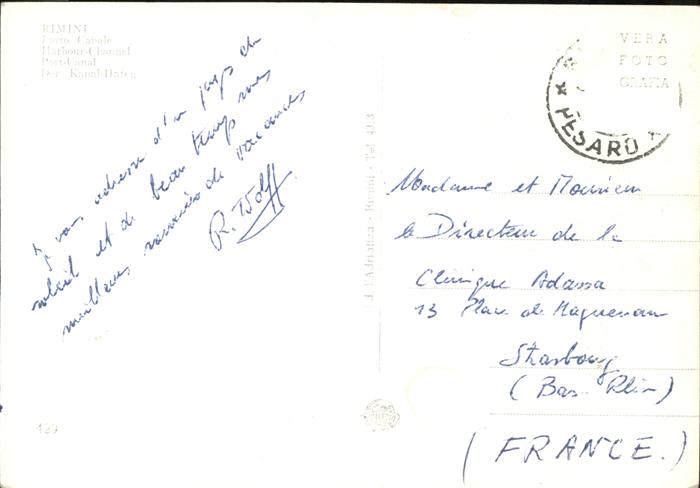 RIMINI
Porto-Canale
Harbour-Channel
Port-Canal
Der Kanal-Hafen
Je vous adresse d'un pays de
soleil et de beau temps mes
meilleurs souvenirs de vacances
R. Wolff
129
Ed. l'Adriatica - Rimini - Tel. 433
VERA
FOTO
GRAFIA
PESARO
Madame et Monsieur
le Directeur de la
Clinique Adassa
13 Place de Haguenau
Strasbourg
(Bas Rhin)
(FRANCE.)